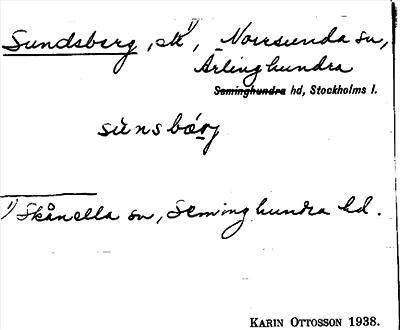 Sundsberg, stt¹⁾, Norrsunda sn,
Ärlinghundra
Seminghundra hd, Stockholms l.
sùnsbærj
¹⁾ Skånella sn, Seminghundra hd.
KARIN OTTOSSON 1938.